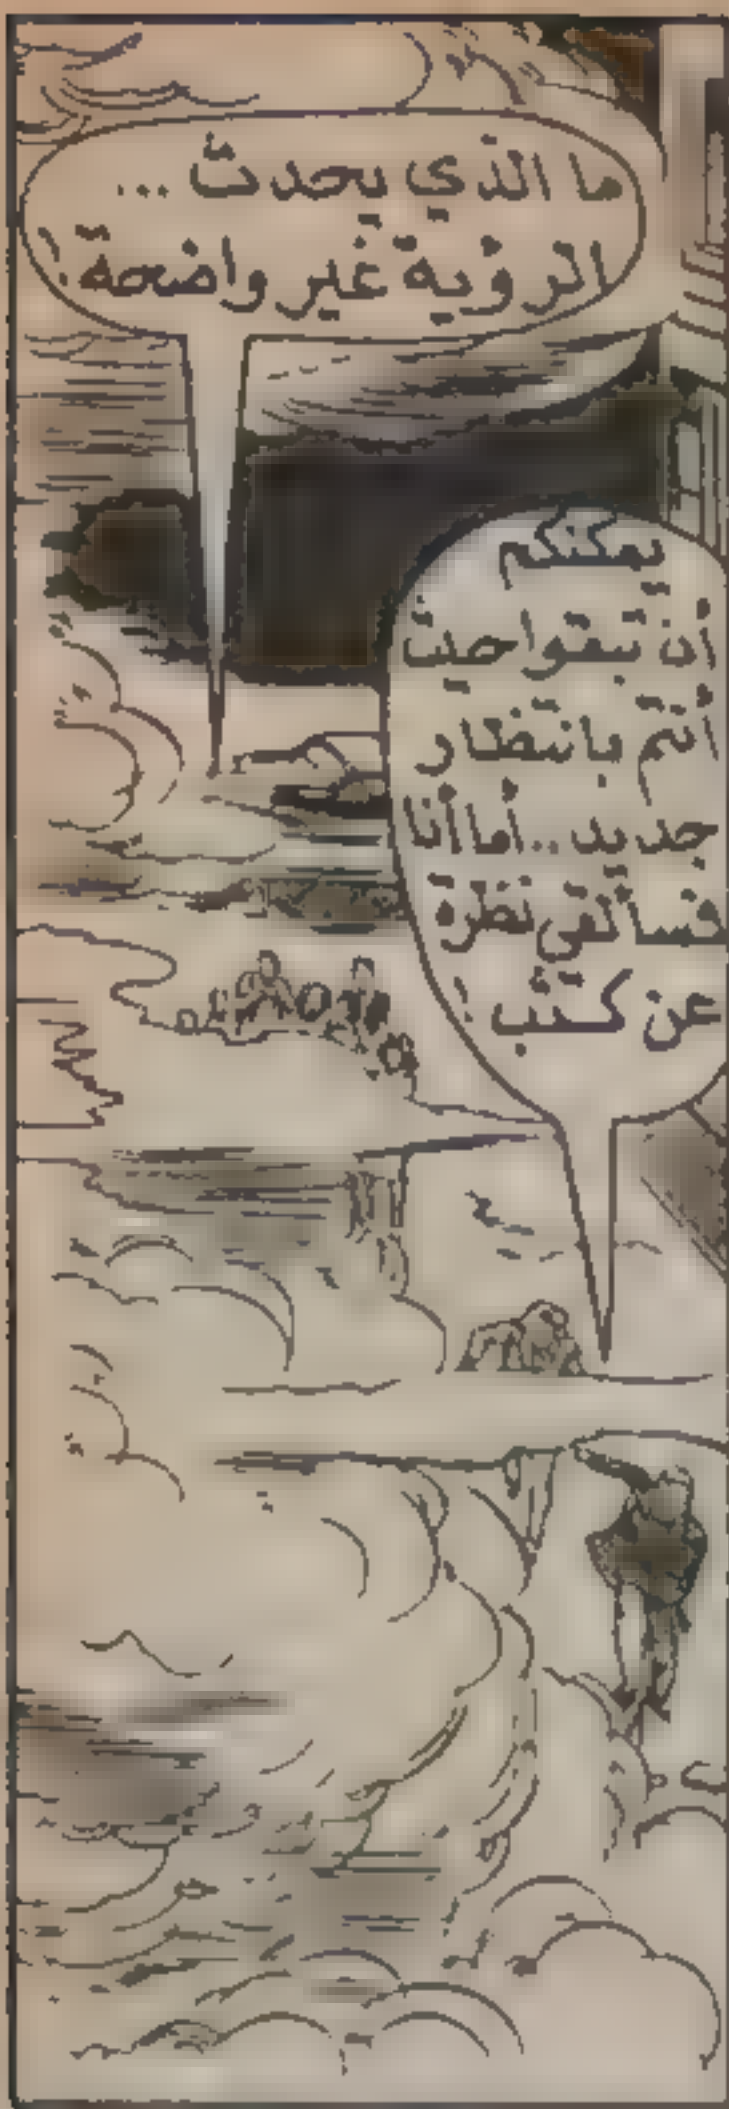 ما الذي يحدث ...
الرؤية غير واضحة !
يمكنكم
أن تبقوا حيث
أنتم بانتظار
جديد .. أما أنا
فسألقي نظرة
عن كثب !